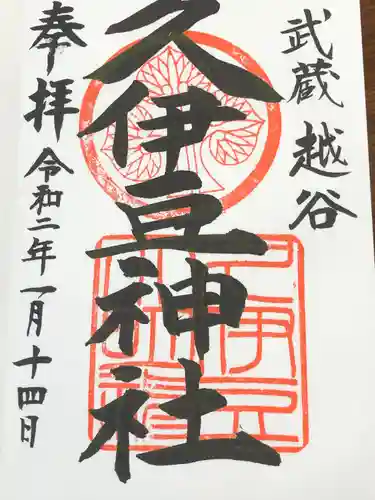 武蔵越谷
久伊豆神社
奉拝
令和二年一月十四日